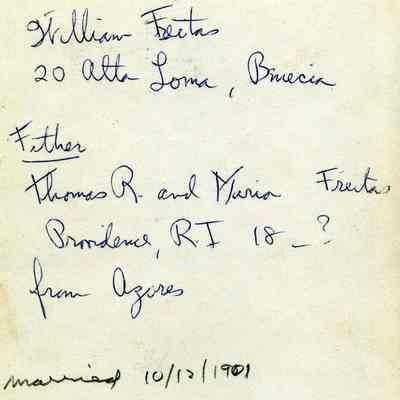 William Feitas
20 Alta Loma, Benecia
Father
Thomas R. and Maria Freitas
Providence, R.I 18_?
from Azores
married 10/12/1901